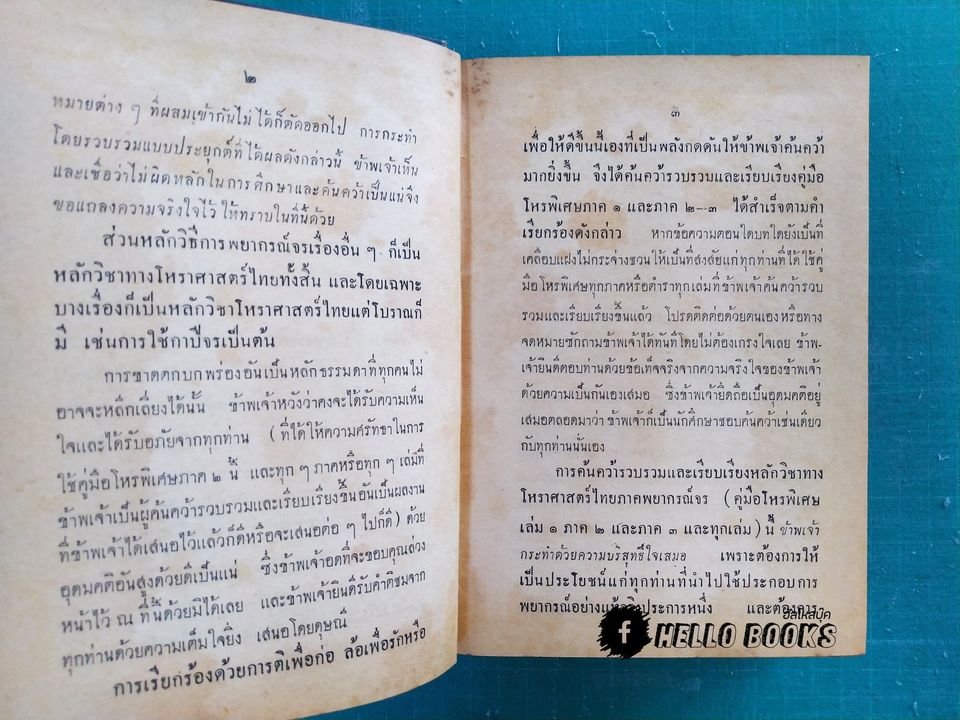 ๒
หมายต่าง ๆ ที่ผสมเข้ากันไม่ได้ก็ตัดออกไป การกระทำ
โดยรวบรวมแบบประยุกต์ที่ได้ผลดังกล่าวนี้ ข้าพเจ้าเห็น
และเชื่อว่าไม่ผิดหลักในการศึกษาและค้นคว้าเป็นแน่จึง
ขอแถลงความจริงใจไว้ ให้ทราบในที่นี้ด้วย
ส่วนหลักวิธีการพยากรณ์จรเรื่องอื่น ๆ ก็เป็น
หลักวิชาทางโหราศาสตร์ไทยทั้งสิ้น และโดยเฉพาะ
บางเรื่องก็เป็นหลักวิชาโหราศาสตร์ไทยแต่โบราณก็
มี เช่นการใช้กาปีจรเป็นต้น
การขาดตกบกพร่องอันเป็นหลักธรรมดาที่ทุกคนไม่
อาจจะหลีกเลี่ยงได้นั้น ข้าพเจ้าหวังว่าคงจะได้รับความเห็น
ใจและได้รับอภัยจากทุกท่าน (ที่ได้ให้ความศรัทธาในการ
ใช้คู่มือโหรพิเศษภาค ๒ นี้ และทุก ๆ ภาคหรือทุก ๆ เล่มที่
ข้าพเจ้าเป็นผู้ค้นคว้ารวบรวมและเรียบเรียงขึ้นอันเป็นผลงาน
ที่ข้าพเจ้าได้เสนอไว้แล้วก็ดีหรือจะเสนอต่อ ๆ ไปก็ดี) ด้วย
อุดมคติอันสูงด้วยดีเป็นแน่ ซึ่งข้าพเจ้าอดที่จะขอบคุณล่วง
หน้าไว้ ณ ที่นี้ด้วยมิได้เลย และข้าพเจ้ายินดีรับคำติชมจาก
ทุกท่านด้วยความเต็มใจยิ่ง เสนอโดยดุษณี
การเรียกร้องด้วยการติเพื่อก่อ ล้อเพื่อรักหรือ
๓
เพื่อให้ดีขึ้นนี้เองที่เป็นพลังกดดันให้ข้าพเจ้าค้นคว้า
มากยิ่งขึ้น จึงได้ค้นคว้ารวบรวมและเรียบเรียงคู่มือ
โหรพิเศษภาค ๑ และภาค ๒-๓ ได้สำเร็จตามคำ
เรียกร้องดังกล่าว หากข้อความตอนใดบทใดยังเป็นที่
เคลือบแฝงไม่กระจ่างชวนให้เป็นที่สงสัยแก่ทุกท่านที่ได้ใช้คู่
มือโหรพิเศษทุกภาคหรือตำราทุกเล่มที่ข้าพเจ้าค้นคว้ารวบ
รวมและเรียบเรียงขึ้นแล้ว โปรดติดต่อด้วยตนเองหรือทาง
จดหมายซักถามข้าพเจ้าได้ทันทีโดยไม่ต้องเกรงใจเลย ข้าพ-
เจ้ายินดีตอบท่านด้วยข้อเท็จจริงจากความจริงใจของข้าพเจ้า
ด้วยความเป็นกันเองเสมอ ซึ่งข้าพเจ้ายึดถือเป็นอุดมคติอยู่
เสมอตลอดมาว่า ข้าพเจ้าก็เป็นนักศึกษาชอบค้นคว้าเช่นเดียว
กับทุกท่านนั่นเอง
การค้นคว้ารวบรวมและเรียบเรียงหลักวิชาทาง
โหราศาสตร์ไทยภาคพยากรณ์จร (คู่มือโหรพิเศษ
เล่ม ๑ ภาค ๒ และภาค ๓ และทุกเล่ม) นี้ ข้าพเจ้า
กระทำด้วยความบริสุทธิ์ใจเสมอ เพราะต้องการให้
เป็นประโยชน์แก่ทุกท่านที่นำไปใช้ประกอบการ
พยากรณ์อย่างแท้จริงประการหนึ่ง และต้องการ
ฮัลโหลบุ๊ค
f HELLO BOOKS